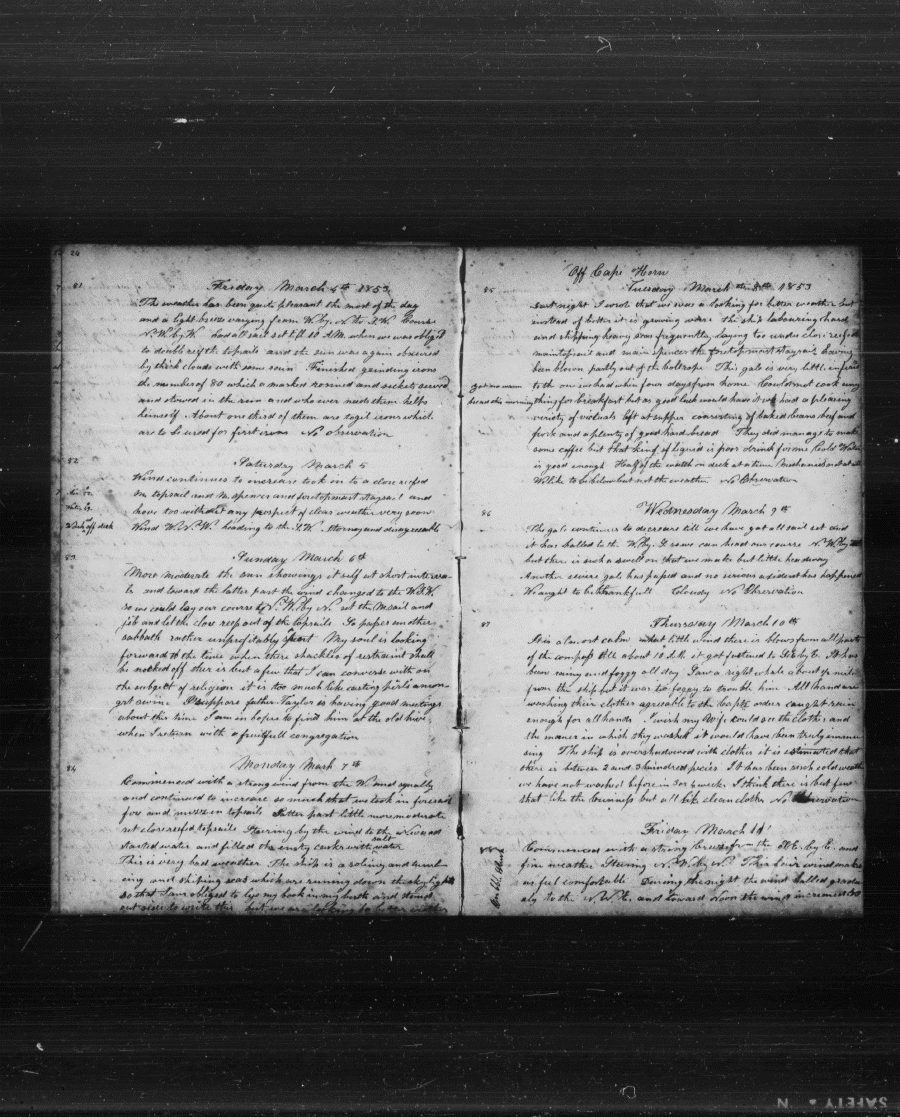 24
81
Friday March 4th 1853
The weather has been quite pleasant the most of the day
and a light breeze varying from W. by N. to S.W. Course
N.W. by W. had all sail set till 10 A.M. when we was obliged
to double reefth topsails and the sun was again obscured
by thick clouds with some rain Finished grinding irons
the number of 80 which a marked and sockets served
and stowed in the and who ever wants them helps
himself. About one third of them are irons which
are to be used for first irons No observation
82
Saturday March 5
Wind continues to increase took on to a close reefed
m. topsail and m. spencer and foretopmast staysail and
have too without any prospect of clear weather very soon
Wind W.N.W. heading to the S.W. Stormy and disagreeable
Watch off deck
83
Sunday March 6th
More moderate the sun showing it self at short interva-
ls and toward the latter part the wind changed to the W.S.W.
so we could lay our course to N.W. by N. set the M. sail and
jib and let the close reef out of the topsails So passes another
sabbath rather unprofitably spent My soul is looking
forward to the time when these shackles of restraint shall
be nocked off ther is but a few that I can converse with on
the subject of religion it is too much like casting perls amon-
gst swine I suppose father Taylor is having good meetings
about this time I am in hopes to find him at the old hive
when I return with a fruitfull congregation
84
Monday March 7th
Commenced with a strong wind from the W. and squally
and continued to increase so much that we took in foresail
fore and mizzen topsails Latter part little more moderate
set close reefed topsails Steering by the wind to the N.
started water and filled the emty casks with salt water
This is very bad weather The ship is a roling and tumb-
ling and shiping seas which are running down the skylight
so that I am obliged to my book in my berth and stand
out side to write this but we are looking for better weather
Off Cape Horn
85
Tuesday March 8th 1853
Last night I wrote that we was a looking for better weather but
instead of better it is growing worse the ship labouring hard
and shipping heavy seas frequently, laying too under close reefed
maintopsail and main spencer the foretopmast staysail having
been blown partly out of the boltrope This gale is very little inferior
to the one we had when four days from home Could not cook any
thing for breakfast but as good luck would have it we had a pleasing
Got no warm
bread this morning
veriety of victuals left at supper consisting of baked beans beef and
pork and a plenty of good hard bread They did manage to make
some coffee but that kind of liquid is poor drink for me Cold Water
is good enough Half of the watch on deck at a time Mechanics not at all
We like to be below but not the weather No Observation
86
Wednesday March 9th
The gale continues to decrease till we have got all sail set and
it has halled to the W. by S. so we can head our course N.W. by
but there is such a swell on that we make but little headway
Another severe gale has passed and no serious axident has happened
We aught to be thankfull Cloudy No Observation
87
Thursday March 10th
It is almost calm what little wind there is blows from all parts
of the compass till about 10 A.M. it got fastned to S.E. by E. It has
been rainy and foggy all day. Saw a right whale about 1/2 mile
from the ship but it was too foggy to trouble him All hands are
washing their clothes agreable to the Capts order caught rain
enough for all hands I wish my wife could see the clothes and
the maner in which they washed it would have been truly amus-
ing The ship is overshadowed with clothes it is estimated that
there is between 2 and 3 hundred peces It has been such cold weath
we have not washed before in 3 or 4 weeks I think there is but few
that like the buisniss but all like clean clothes No Observation
88
Friday March 11
Commenced with a strong breeze from the S.E. by E. and
fine weather Steering N.W. by N. This fair wind makes
us feel comfortable During the night the wind halled gradu-
aly to the N.W. and toward Noon the wind increased so